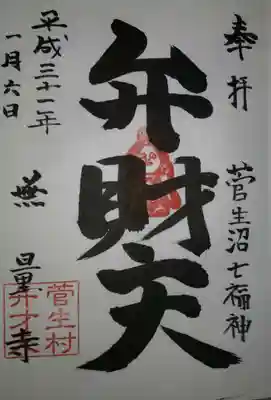 奉拝
菅生沼七福神
弁財天
平成三十一年
一月六日
菅生村
弁才寺